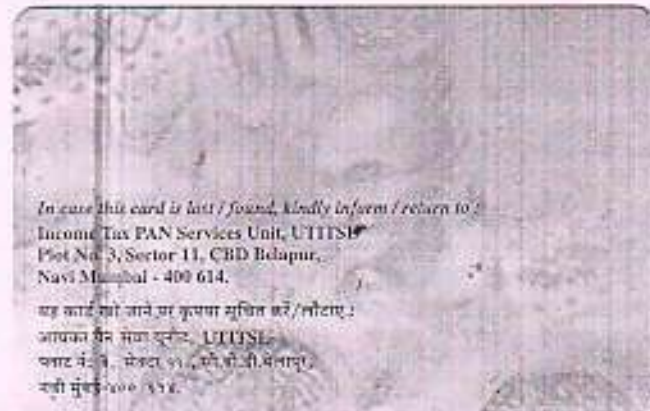 In case this card is lost / found, kindly inform / return to :
Income Tax PAN Services Unit, UTITSL
Plot No. 3, Sector 11, CBD Belapur,
Navi Mumbai - 400 614.
यह कार्ड खो जाने पर कृपया सूचित करें/लौटाएं :
आयकर पैन सेवा यूनीट, UTITSL
प्लाट नं: ३, सेक्टर ११, सी.बी.डी.बेलापूर,
नवी मुंबई-४०० ६१४.